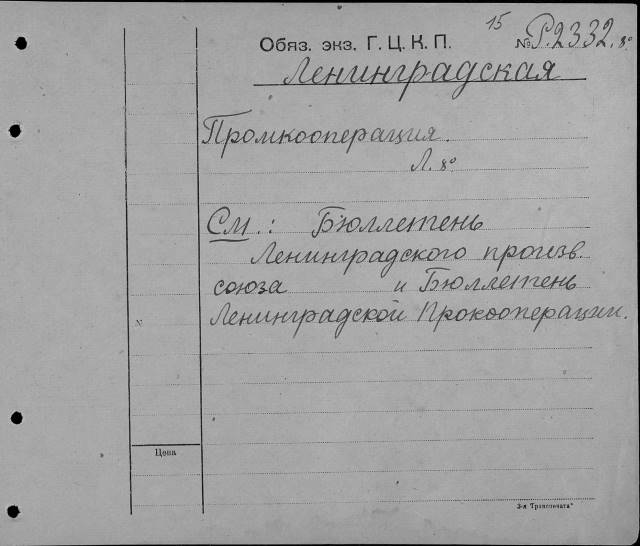 15
Обяз. экз. Г. Ц. К. П. № Р.2332. 8°
Ленинградская
Промкооперация.
Л. 8°.
См.: Бюллетень
Ленинградского произв.
союза и Бюллетень
Ленинградской Прокооперации.
N
Цена
3-я „Транспечать"